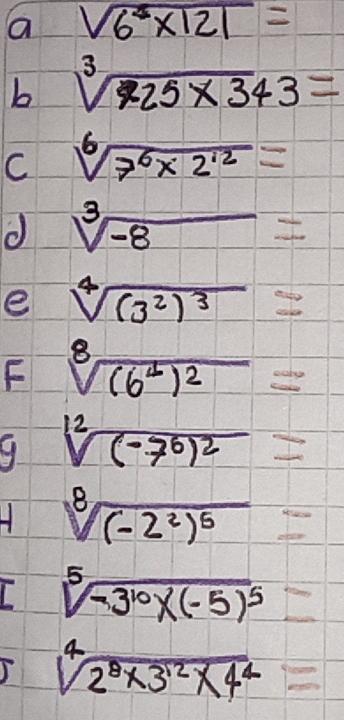 a √(6⁴×121) =
b ∛(225×343) =
c ⁶√(7⁶×2¹²) =
d ∛(-8) =
e ⁴√((3²)³) =
F ⁸√((6⁴)²) =
g ¹²√((-7⁶)²) =
H ⁸√((-2²)⁵) =
I ⁵√(-3¹⁰×(-5)⁵) =
J ⁴√(2⁸×3¹²×4⁴) =